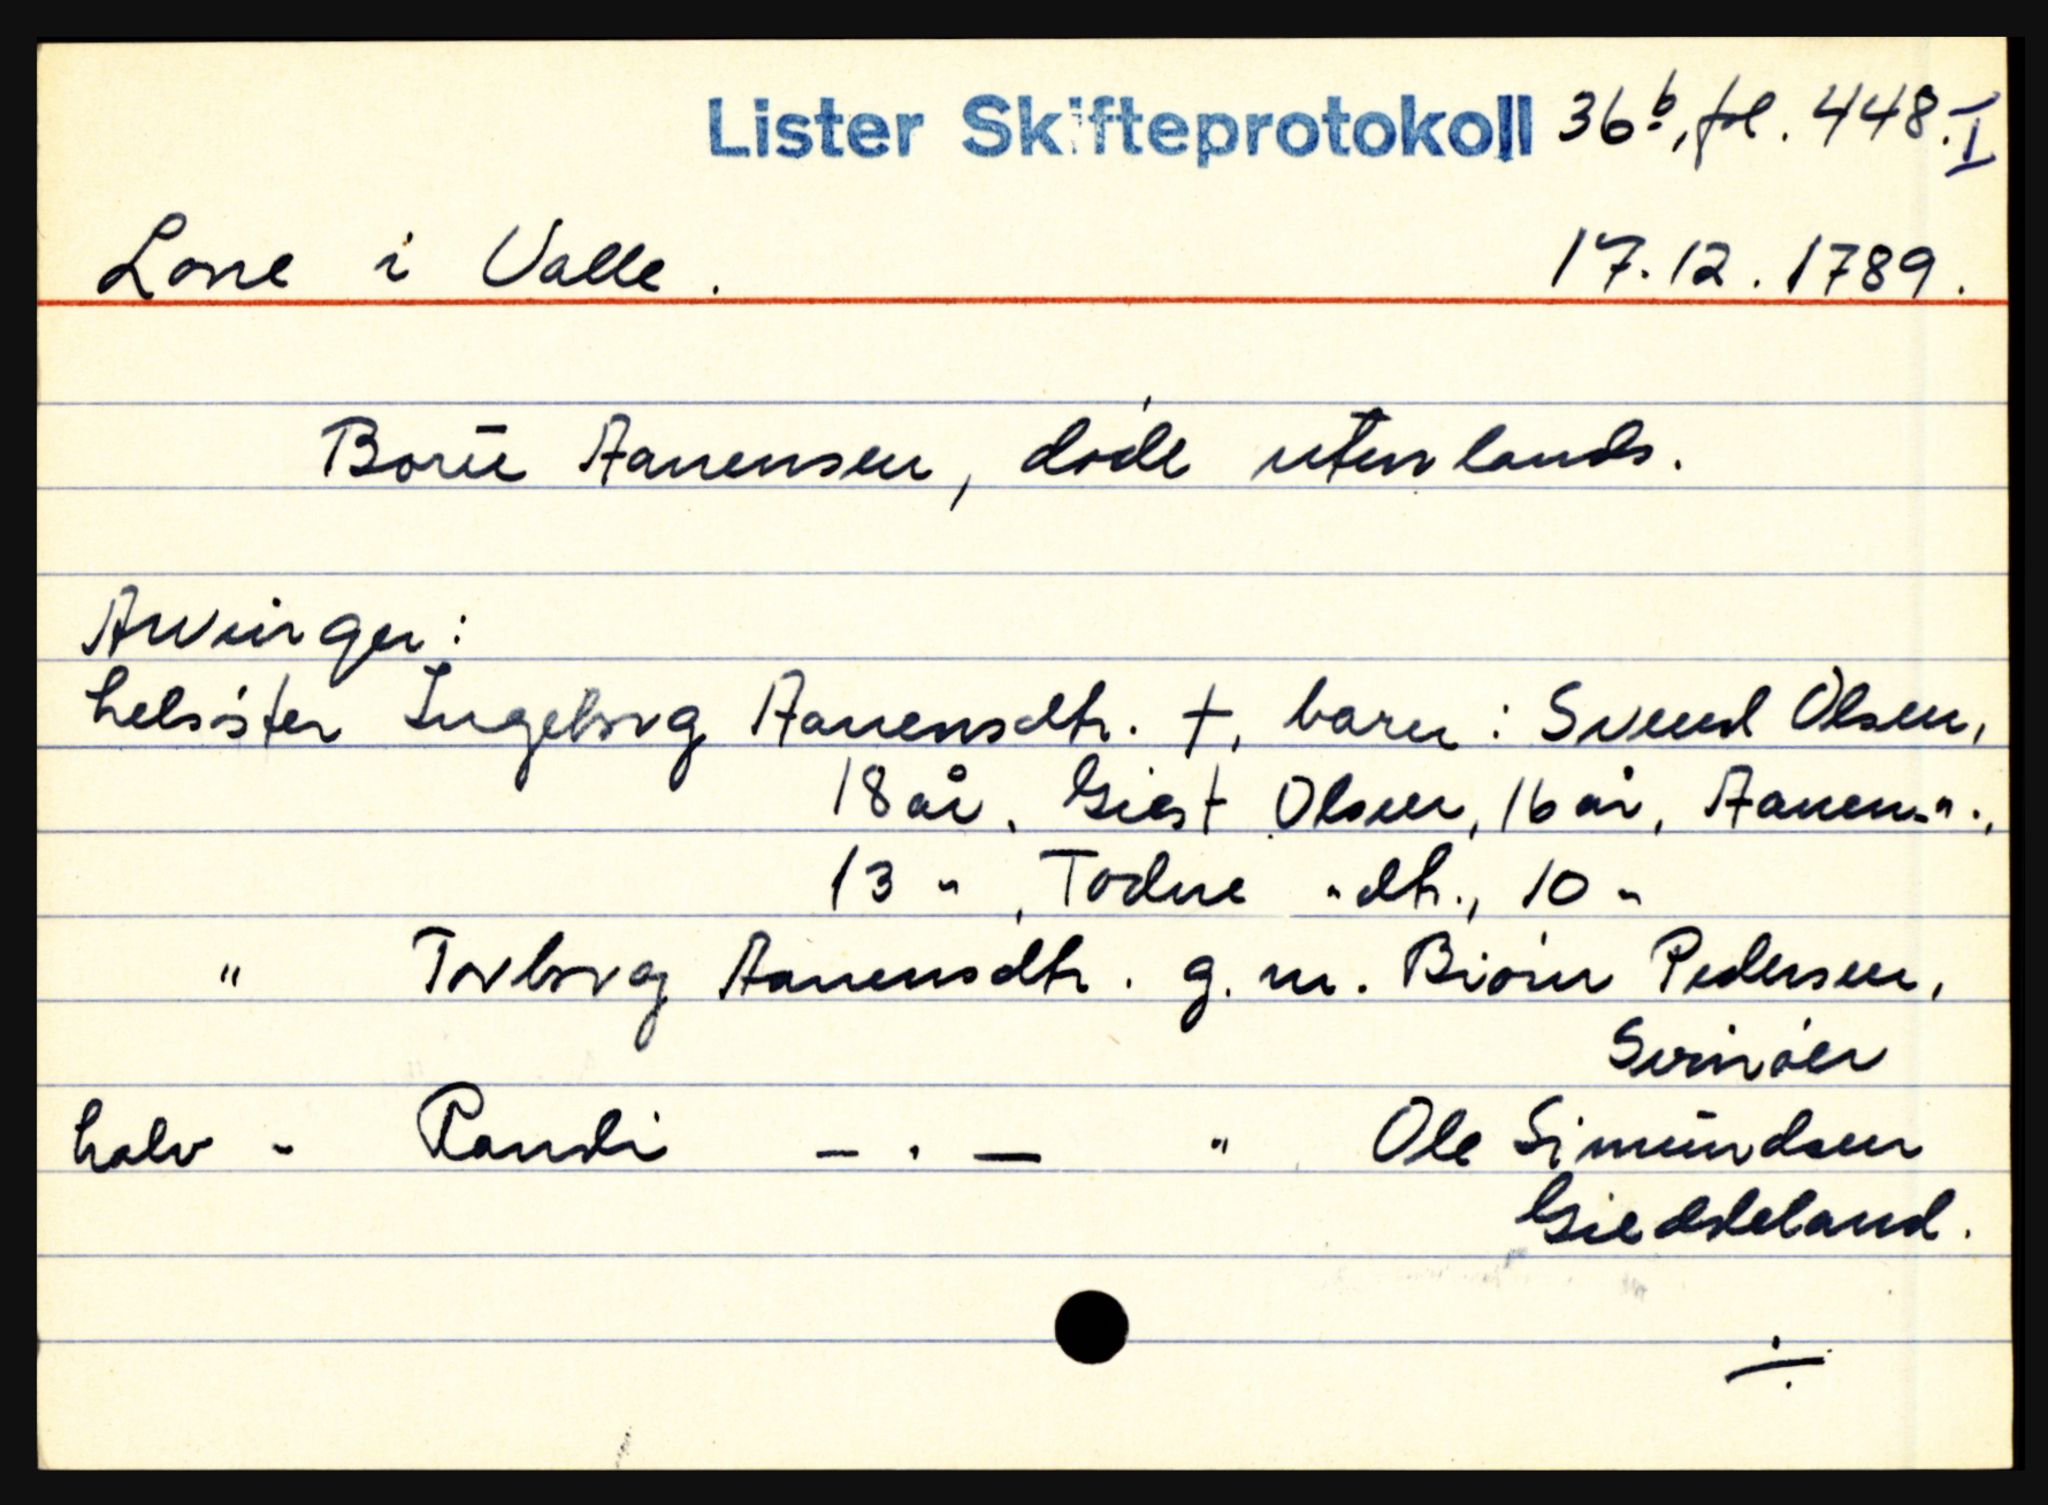 Lister Skifteprotokoll 36b, fol. 448. I
Lone i Valle. 17.12.1789.
Borū Aanensen, døde utenlands.
Arvinger:
helsøster Ingeborg Aanensdtr. †, barn: Svend Olsen,
18 år, Giest Olsen, 16 år, Aanen -"-.,
13 " , Todne " dtr., 10 "
" Torborg Aanensdtr. g. m. Biörn Pedersen,
halv " Randi — . — " Ole Simūndsen
Giedsleland.
÷